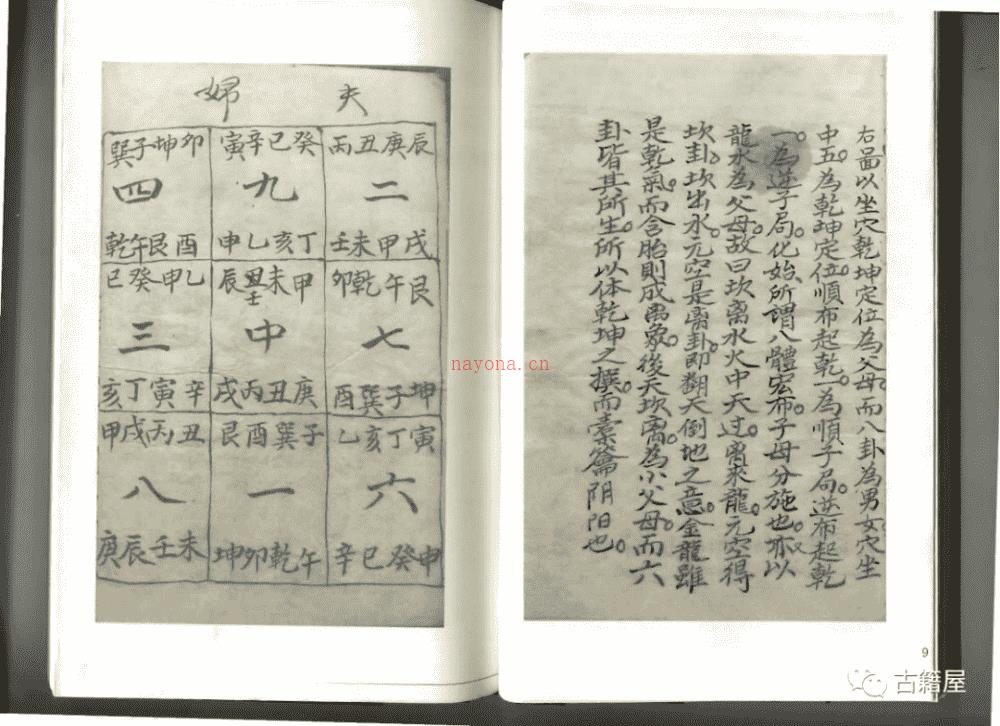 右啚以坐穴乾坤定位為父母而八卦為男女穴坐
中五為乾坤定位順布起乾一為順子局逆布起乾
一為逆子局化始所謂八體宏布子母分施也亦以
龍水為父母故曰坎离水火中天过离來龍元空得
坎卦坎出水元空是离卦即翻天倒地之意金龍雖
是乾氣而含胎則成禹象後天坎离為小父母而六
卦皆其所生所以体乾坤之撰而橐籥阴阳也
夫 婦
辰庚丑丙 癸巳辛寅 卯坤子巽
二 九 四
戌甲未壬 丁亥乙申 酉艮午乾
艮午乾卯 甲未丑壬辰 乙申癸巳
七 中 三
坤子巽酉 庚丑丙戌 辛寅丁亥
寅丁亥乙 子巽酉艮 丑丙戌甲
六 一 八
申癸巳辛 午乾卯坤 未壬辰庚
nayona.cn
9
古籍屋